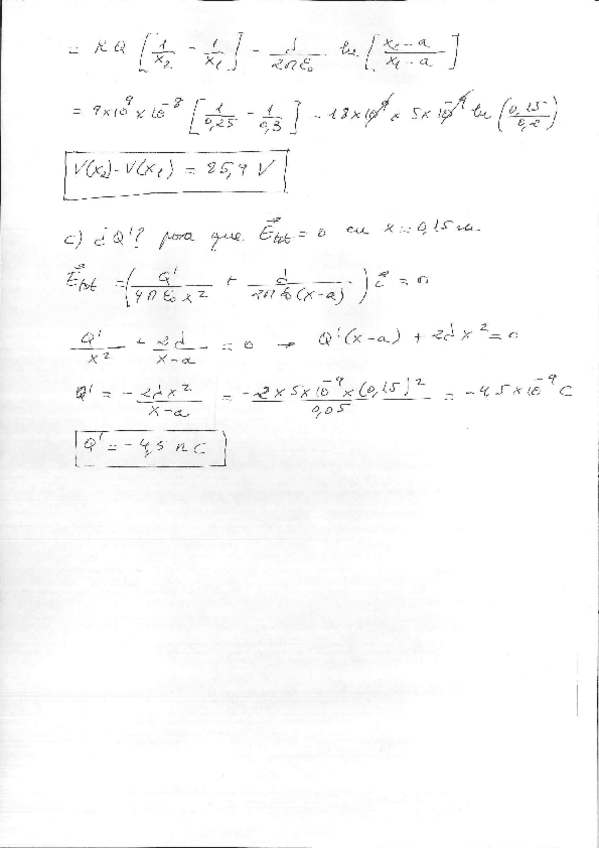 = K Q [ 1/x₂ - 1/x₁ ] - λ/2πε₀ ln [ x₂-a / x₁-a ]
= 9×10⁹×10⁻⁸ [ 1/0,25 - 1/0,3 ] - 18×10⁹ × 5×10⁻⁹ ln ( 0,15/0,2 )
V(x₂)-V(x₁) = 25,9 V
c) ¿Q'? para que E⃗tot = 0 en x = 0,15 m.
E⃗tot = ( Q'/4πε₀x² + λ/2πε₀(x-a) ) i⃗ = 0
Q'/x² + 2λ/x-a = 0 → Q'(x-a) + 2λx² = 0
Q' = - 2λx²/x-a = - 2×5×10⁻⁹×(0,15)²/0,05 = -4,5×10⁻⁹ C
Q' = -4,5 nC